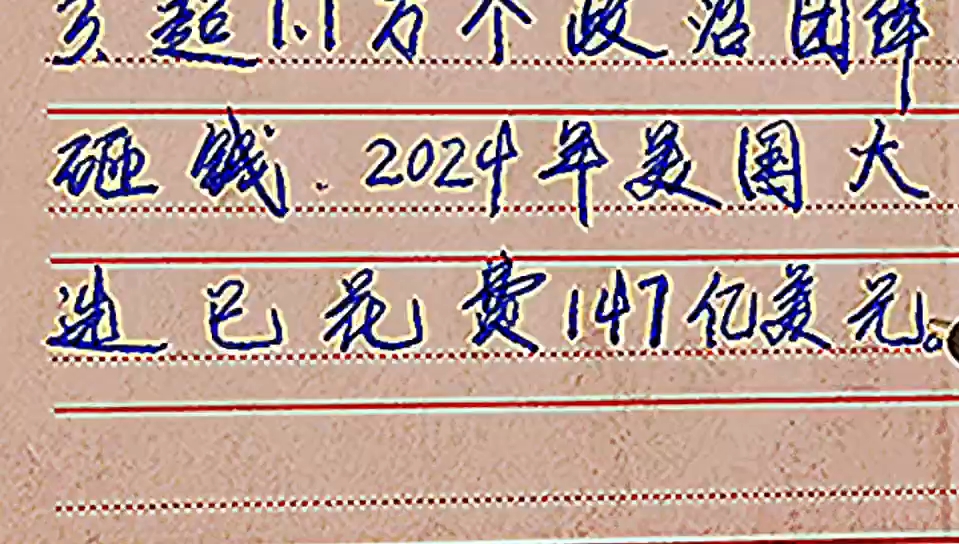 超1.1万个政治团体
砸钱.2024年美国大
选已花费147亿美元。